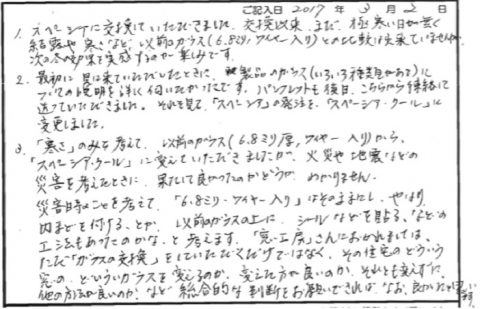 ご記入日 2017年 3月 2日
1. スペーシアに交換していただきました。交換以来、まだ、極寒い日が無く
結露や寒さなど、以前のガラス(6.8ミリ、ワイヤー入り)との比較は出来ていませんが、
次の冬の効果を実感するのが楽しみです。
2. 最初に見に来ていただいたときに、製品のガラス(いろいろ種類があるよ)に
ついての説明を詳しく伺いたかったです。パンフレットも後日、こちらから連絡して
送っていただきました。それを見て、「スペーシア」の発注を、「スペーシア・クール」に
変更しました。
3. 「寒さ」のみを考えて、以前のガラス(6.8ミリ厚、ワイヤー入り)から、
「スペーシア・クール」に変えていただきましたが、火災や地震などの
災害を考えたときに、果たして良かったのかどうか わかりません。
災害時のことを考えて、「6.8ミリ・ワイヤー入り」はそのままにし、やはり
内まどを付ける、とか、以前のガラスの上に、シールなどを貼る、などの
工夫もあったのかな、と考えます。「窓工房」さんにおかれましては、
ただ「ガラスの交換」をしていただくだけではなく、その住宅のどういう
窓の、どういいガラスを変えるのか、変えた方が良いのか、それとも変えずに、
他の方法が良いのか、など 総合的な判断をお願いできれば、なお、良かったと思い
ます。